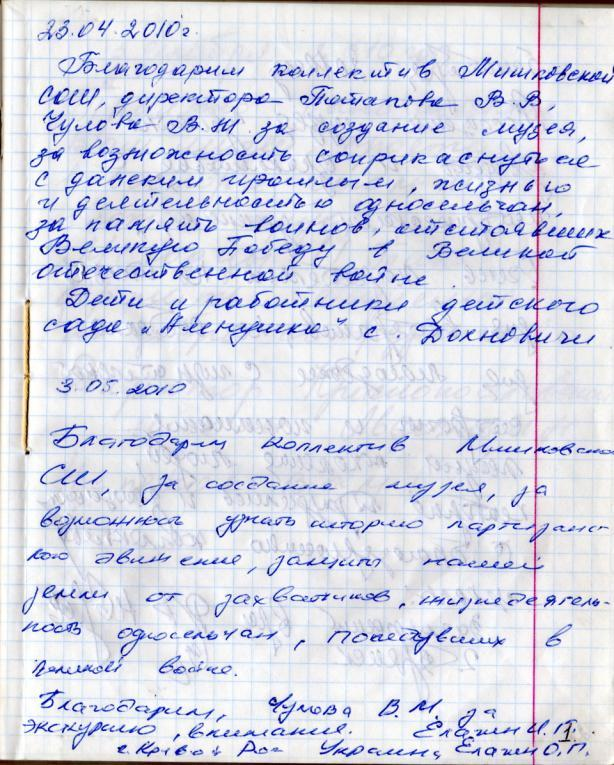 23.04.2010г.
Благодарим коллектив Мишковской
СОШ, директора Потапова В.В,
Чулова В.М. за создание музея,
за возможность соприкаснуться
с далеким прошлым, жизнью
и деятельностью односельчан,
за память воинов, отстоявших
Великую Победу в Великой
отечественной войне.
Дети и работники детского
сада „Аленушка" с. Дохновичи
3.05.2010
Благодарим коллектив Мишковской
СШ, за создание музея, за
возможность узнать историю партизанс-
кого движения, защиты нашей
земли от захватчиков, жизнедеятель-
ность односельчан, победивших в
Великой войне.
Благодарим, Чулова В.М. за
экскурсию, внимание. Елагин И.П.
г. Кривой Рог Украина Елагин О.П.
1